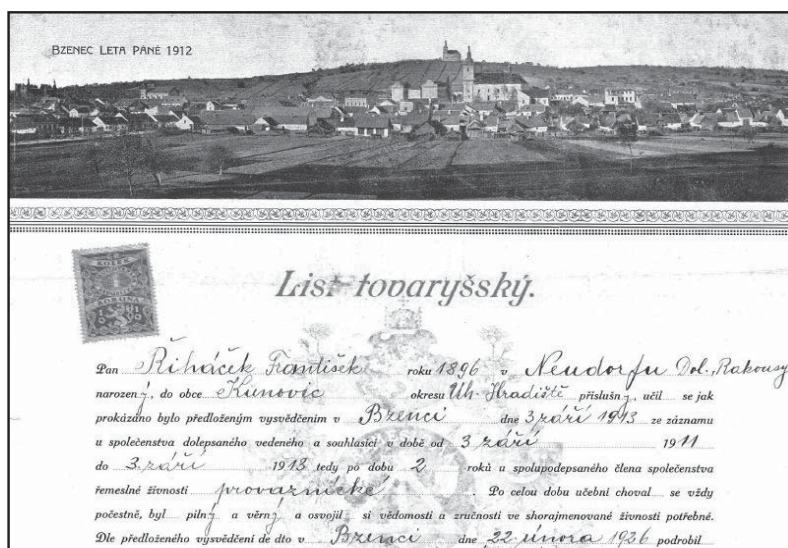 BZENEC LETA PÁNĚ 1912
KOLEK
1
KORUNA
List tovaryšský.
Pan Řiháček František roku 1896 v Neudorfu Dol. Rakousy
narozený, do obce Kunovic okresu Uh. Hradiště příslušný, učil se jak
prokázáno bylo předloženým vysvědčením v Bzenci dne 3 září 1913 ze záznamu
u společenstva dolepsaného vedeného a souhlasící v době od 3 září 1911
do 3. září 1913 tedy po dobu 2 roků u spolupodepsaného člena společenstva
řemeslné živnosti provaznické. Po celou dobu učební choval se vždy
počestně, byl pilný a věrný a osvojil si vědomosti a zručnosti ve shorajmenované živnosti potřebné.
Dle předloženého vysvědčení de dto v Bzenci dne 22 února 1926 podrobil